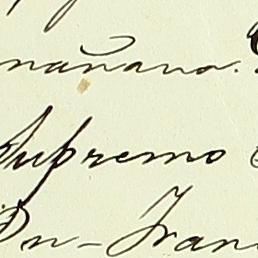 mañana.
Supremo
Dn- Fran